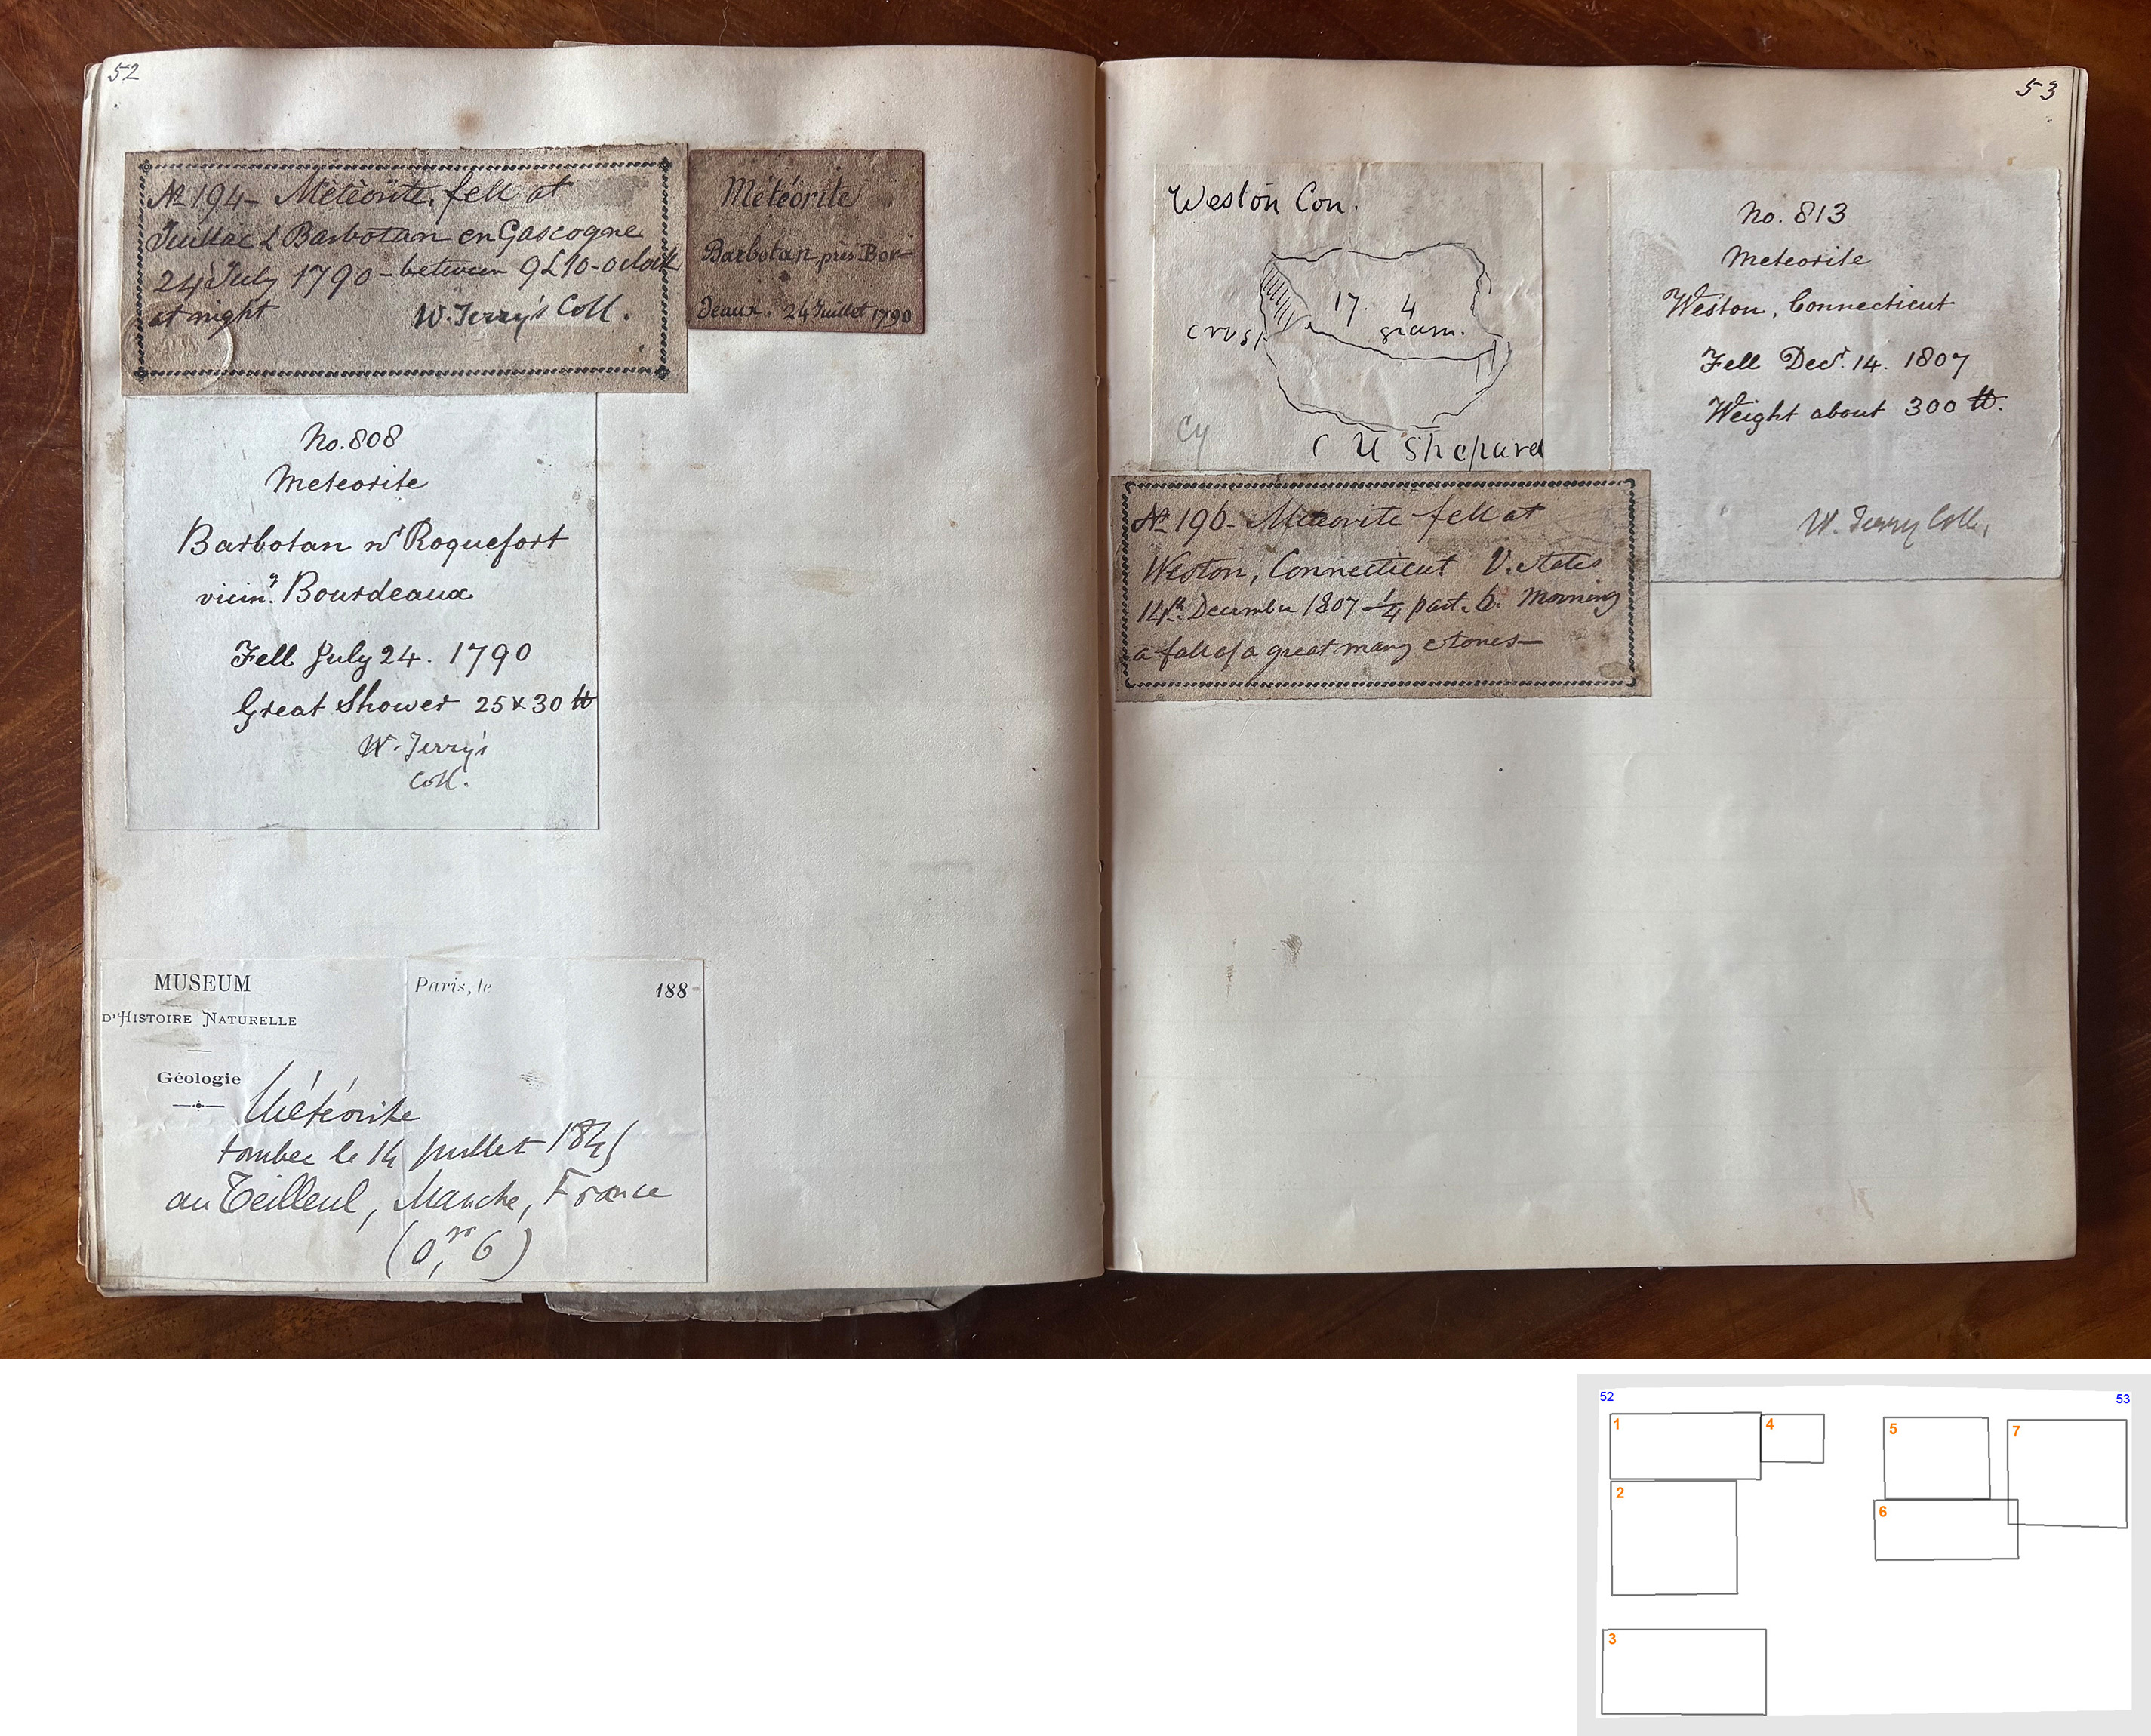 52
No 194 - Météorite, fell at
Juillac & Barbotan en Gascogne
24 July 1790 - between 9 & 10 - oclock
at night W. Terry's Coll.
Météorite
Barbotan, près Bor-
deaux. 24 Juillet 1790
No. 808
Meteorite
Barbotan nr Roquefort
viciny. Bourdeaux
Fell July 24. 1790
Great Shower 25 & 30 lb
W. Terry's
Coll.
MUSEUM
D'HISTOIRE NATURELLE
Géologie
Paris, le 188
Météorite
tombée le 14 juillet 1845
au Teilleul, Manche, France
(0,gr 6)
53
Weston Con.
17. 4
gram.
crust
Cy
C U Shepard
No 196 - Meteorite fell at
Weston, Connecticut U. States
14th. December 1807 1/4 past. 6. Morning
a fall of a great many stones -
No. 813
Meteorite
Weston, Connecticut
Fell Decr. 14. 1807
Weight about 300 lb.
W. Terry Coll.
52
53
1
4
2
3
5
7
6